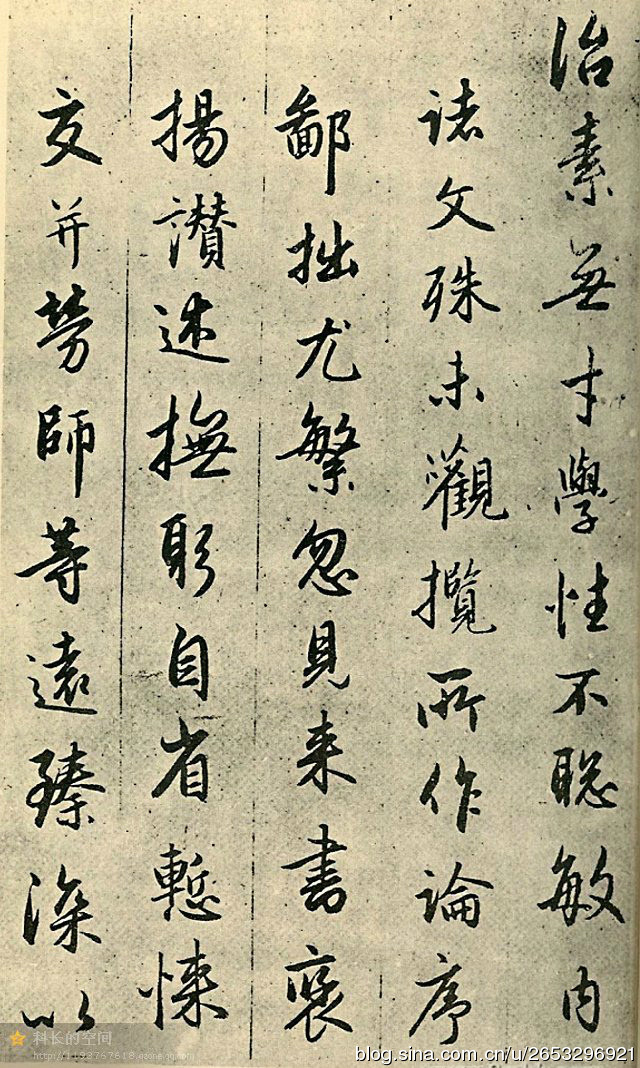 治素無才學性不聰敏内
諸文殊未觀攬所作論序
鄙拙尤繁忽見来書褒
揚讃述撫躬自省慙悚
交并勞師等遠臻深以
科长的空间
blog.sina.com.cn/u/2653296921